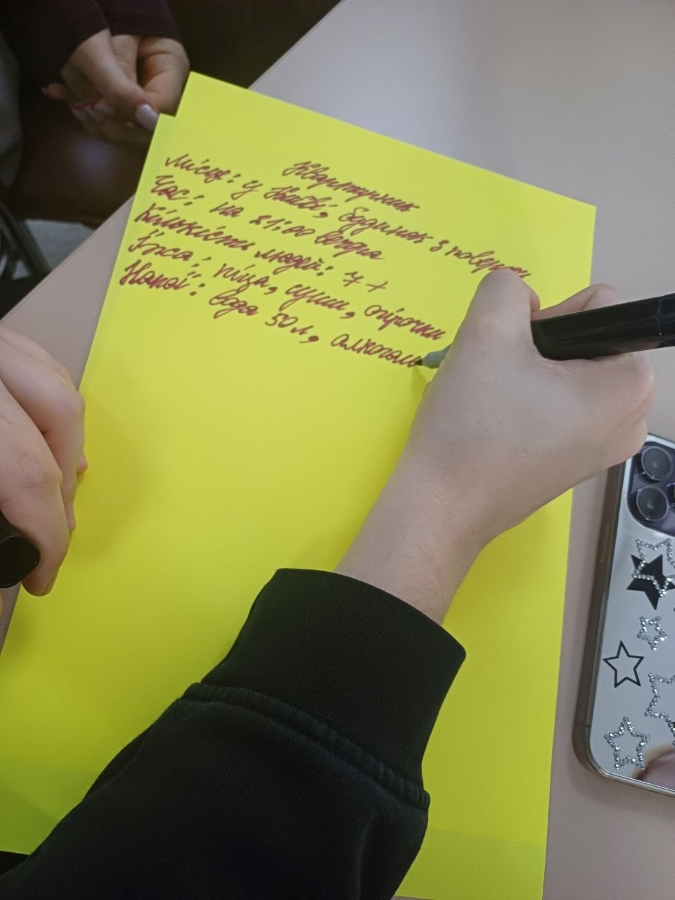 Квартирник
Місце: у Насті, будинок 3 поверхи
Час: на 21:00 вечора
Кількість людей: 7+
Їжа: піца, суши, огірочки
Напої: вода 50л, алкоголь